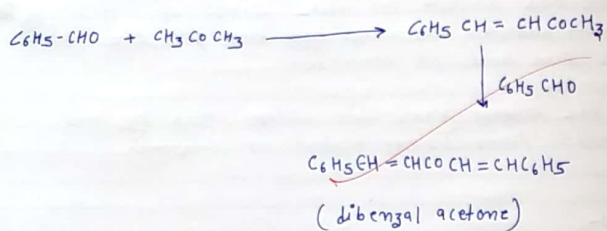 C6H5-CHO + CH3COCH3 ⟶ C6H5CH=CHCOCH3
↓ C6H5CHO
C6H5CH=CHCOCH=CHC6H5
(dibenzal acetone)